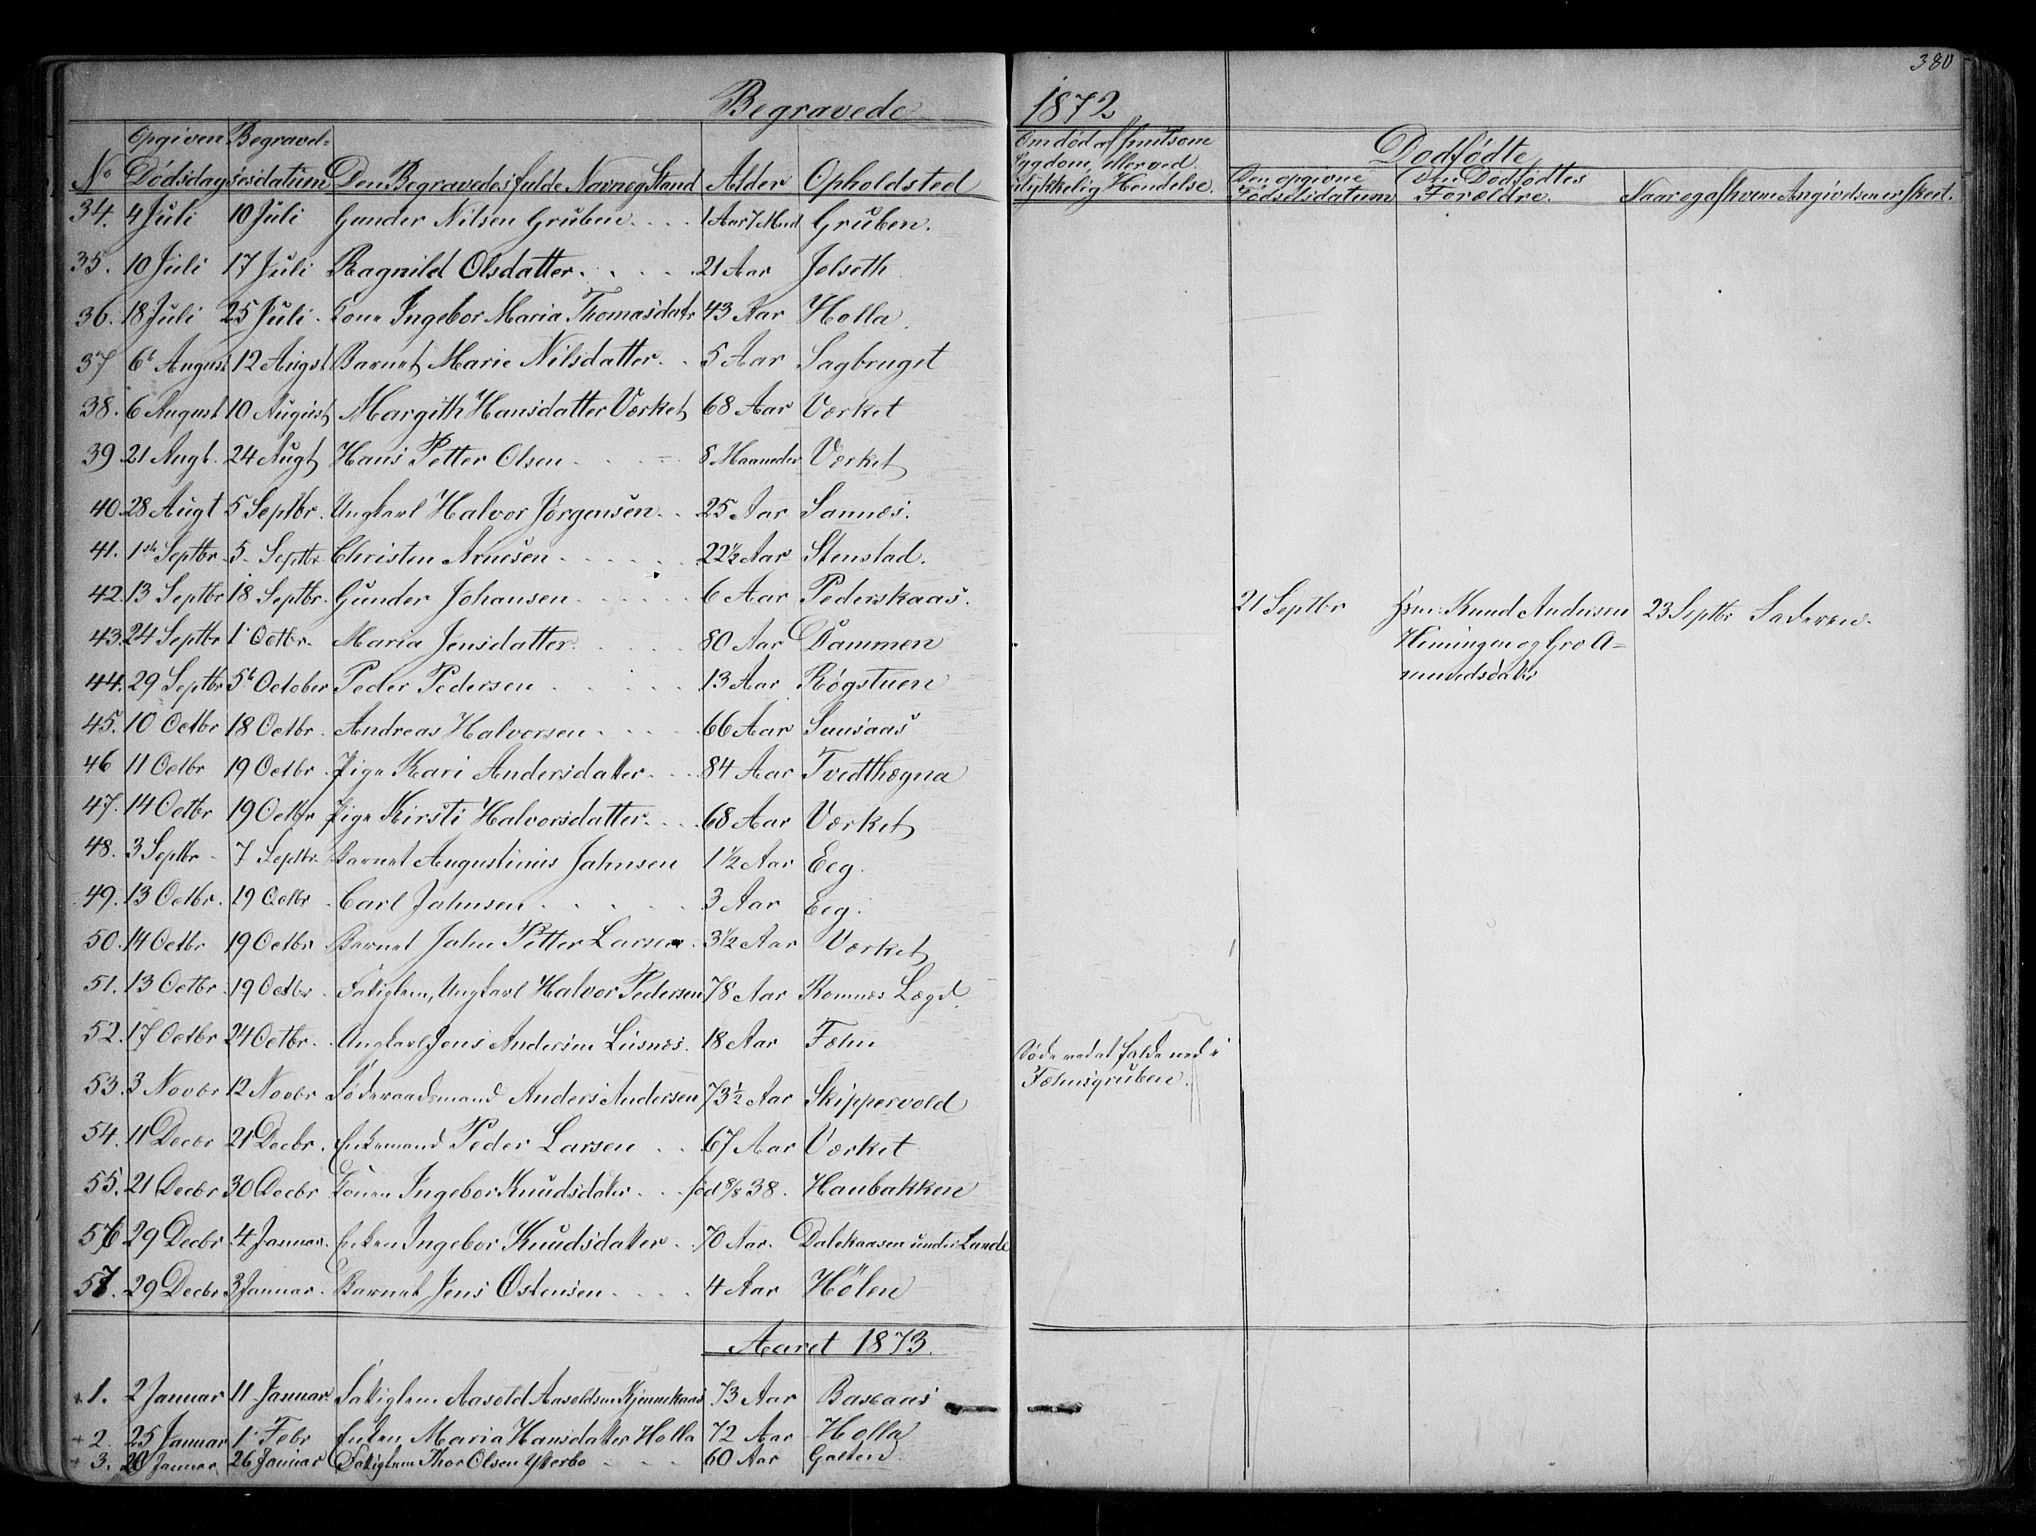 380
Begravede 1872
No Opgiven Dødsdag Begravelsesdatum Den Begravedes fulde Navn og Stand Alder Opholdsted Om død af smitsom Sygdom, eller ved ulykkelig Hendelse. Dødfødte
Den opgivne Fødselsdatum Den Dødfødtes Forældre. Naar og af hvem Angivelsen er skeet.
34. 4 Juli 10 Juli Gunder Nilsen Gruben 1 Aar 7 Mnd Gruben.
35. 10 Juli 17 Juli Ragnild Olsdatter 21 Aar Jolseth
36. 18 Juli 25 Juli Kone Ingebor Maria Thomasdatr 43 Aar Holla
37 6t August 12 Augst Barnet Marie Nilsdatter 5 Aar Sagbruget
38. 6 August 10 August Margith Hansdatter Værket 68 Aar Værket
39. 21 Augt. 24 Augt Hans Petter Olsen 8 Maaneder Værket
40. 28 Augt 5 Septbr. Ungkarl Halvor Jørgensen 25 Aar Sannes.
41. 1ste Septbr 5 Septbr Christen Arnesen 22½ Aar Stenstad.
42. 13 Septbr 18 Septbr. Gunder Johansen 6 Aar Pederskaas.
21 Septbr Knud Andersen Himingen og Gro Amundsdatr 23 Septbr Faderen.
43. 24 Septbr 1 Octbr. Maria Jensdatter 80 Aar Dammen
44. 29 Septbr 5t October Peder Pedersen 13 Aar Røgstuen
45. 10 Octbr 18 Octbr. Andreas Halvorsen 66 Aar Sunsaas
46 11 Octbr 19 Octbr. Pige Kari Andersdatter 84 Aar Tvedthægna
47. 14 Octbr 19 Octbr Pige Kirsti Halvorsdatter 68 Aar Værket
48. 3 Septbr 7 Septbr. Barnet Augustinus Jahnsen 1½ Aar Eeg.
49. 13 Octbr. 19 Octbr. Carl Jahnsen 3 Aar Eeg.
50. 14 Octbr 19 Octbr Barnet Jahn Petter Larsen 3½ Aar Værket
51. 13 Octbr 19 Octbr. Fatiglem, Ungkarl Halvor Pedersen 78 Aar Romnes Lægd.
52. 17 Octbr 24 Octbr. Ungkarl Jens Andersen Lisnæs. 18 Aar Fæhn Døde ved at falde ned i Fæhnsgruben.
53. 3 Novbr 12 Novbr Føderaadsmand Anders Andersen 73½ Aar Skippervold
54. 11 Decbr 21 Decbr. Enkemand Peder Larsen 67 Aar Værket
55. 21 Decbr 30 Decbr Konen Ingebor Knudsdater fød 8/8 38. Haubakken
56 29 Decbr 4 Januar. Enken Ingebor Knudsdatter 70 Aar. Dalekaasen under Lunde
57. 29 Decbr 3 Januar. Barnet Jens Ostensen 4 Aar Hølen
Aaret 1873.
1. 2 Januar 11 Januar Fatiglem Aasold Aasoldsen Kjennekaas 73 Aar Baseaas
2. 25 Januar 1 Febr Enken Maria Hansdatter Holla 72 Aar Holla
3. 20 Januar 26 Januar Fatiglem Thor Olsen Ytterbø 60 Aar Galten